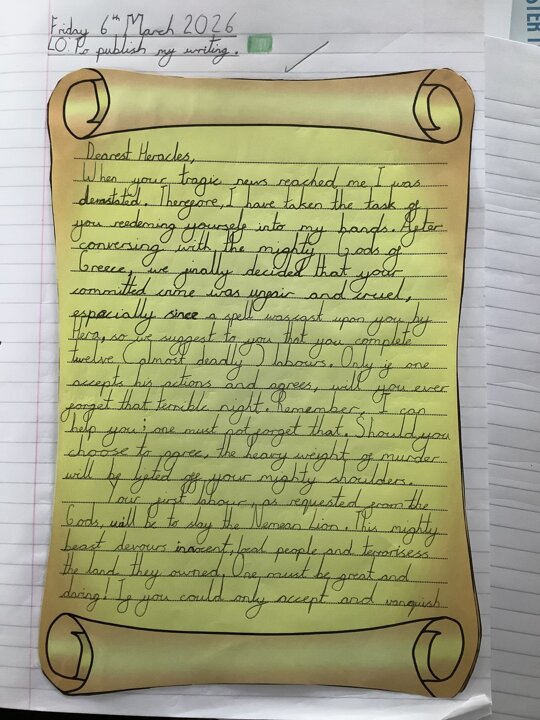 Friday 6th March 2026
LO: To publish my writing.
Dearest Heracles,
When your tragic news reached me, I was
devastated. Therefore, I have taken the task of
you redeming yourself into my hands. After
conversing with the mighty Gods of
Greece, we finally decided that your
committed crime was unfair and cruel,
especially since a spell was cast upon you by
Hera, so we suggest to you that you complete
twelve (almost deadly) labours. Only if one
accepts his actions and agrees, will you ever
forget that terrible night. Remember, I can
help you; one must not forget that. Should you
choose to agree, the heavy weight of murder
will be lifted off your mighty shoulders.
Your first labour, as requested from the
Gods, will be to slay the Nemean Lion. This mighty
beast devours innocent, local people and terrorisess
the land they owned. One must be great and
daring! If you could only accept and vanquish